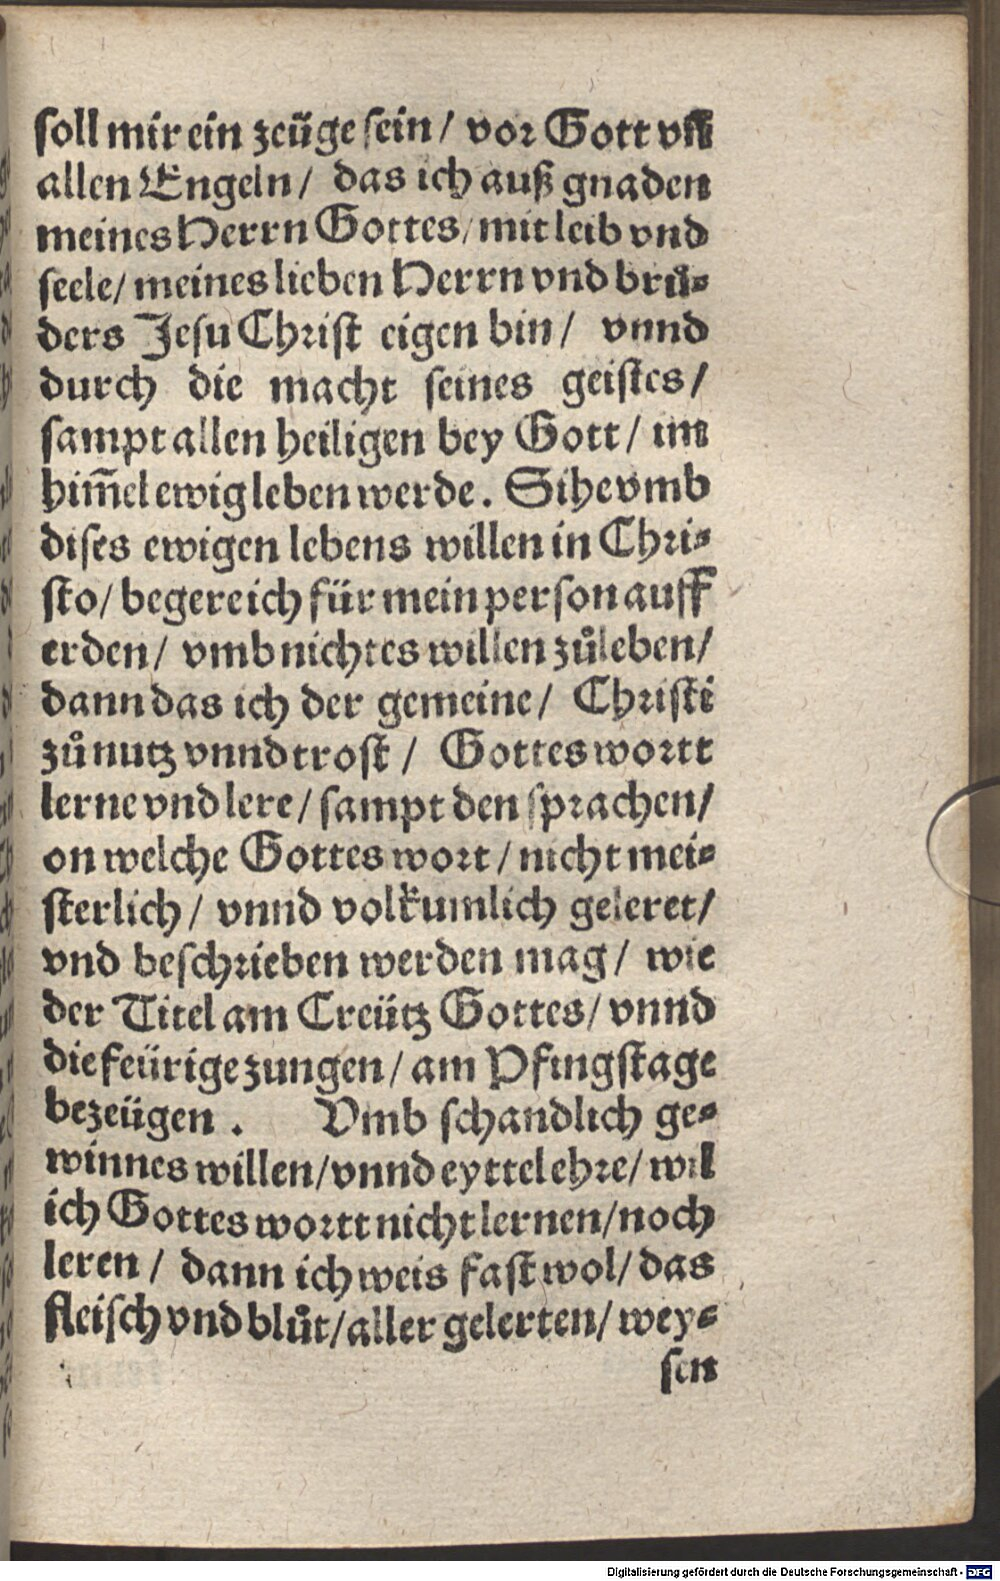 soll mir ein zeüge sein / vor Gott vñ
allen Engeln / das ich auß gnaden
meines Herrn Gottes / mit leib vnd
seele / meines lieben Herrn vnd brů⸗
ders Jesu Christ eigen bin / vnnd
durch die macht seines geistes /
sampt allen heiligen bey Gott / im
him̃el ewig leben werde . Sihe vmb
dises ewigen lebens willen in Chri⸗
sto / begere ich für mein person auff
erden / vmb nichtes willen zůleben /
dann das ich der gemeine / Christi
zů nutz vnnd trost / Gottes wortt
lerne vnd lere / sampt den sprachen /
on welche Gottes wort / nicht mei⸗
sterlich / vnnd volkumlich geleret /
vnd beschrieben werden mag / wie
der Titel am Creütz Gottes / vnnd
die feürige zungen / am Pfingstage
bezeügen . Vmb schandlich ge⸗
winnes willen / vnnd eyttel ehre / wil
ich Gottes wortt nicht lernen / noch
leren / dann ich weis fast wol / das
fleisch vnd blůt / aller gelerten / wey⸗
sen
Digitalisierung gefördert durch die Deutsche Forschungsgemeinschaft - DFG